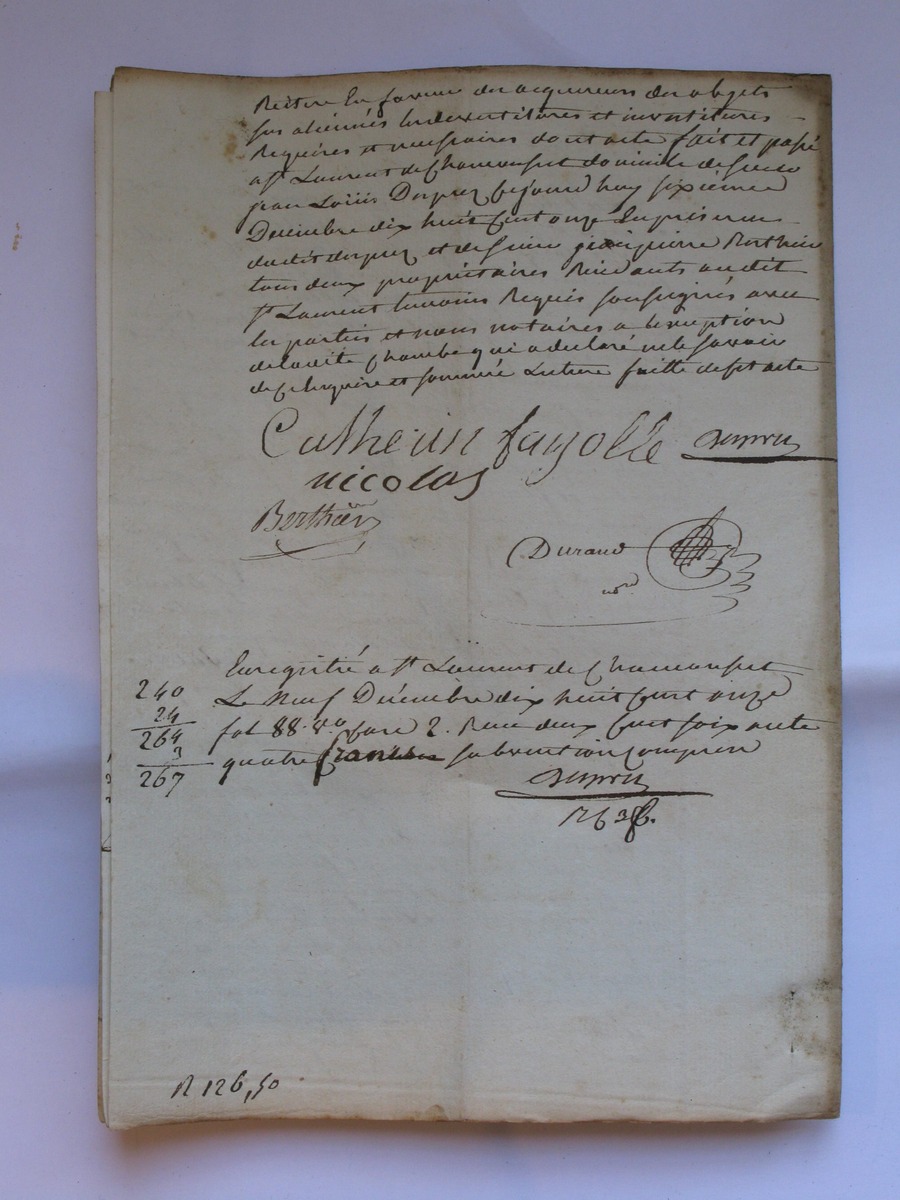 en faveur des acquereurs des objets
sus aliénés les devestitures et investitures
Requises et necessaires dont acte fait et passé
a St Laurent de Chamousset domicile de sieur
jean Louis Duprez ce jourd'huy sixieme
Decembre dix huit cent onze En presence
dudit duprez et de sieur pierre Berthier
tous deux propriétaires Residants audit
St Laurent temoins Requis soussignés avec
les parties et nous notaires a l'exception
de ladite Chambe qui a declaré ne le savoir
de ce Enquise et sommée Lecture faitte desdt acte
Catherin fayolle Duprez
nicolas
Berthier
Durand
nore
Enregistré a St Laurent de Chamousset
240 Le Neuf Décembre dix huit cent onze
24 fol 88 Ro Case 2. Reçu deux Cent soixante
264 quatre francs subvention Comprise
3
267
Duprez
R 126,50